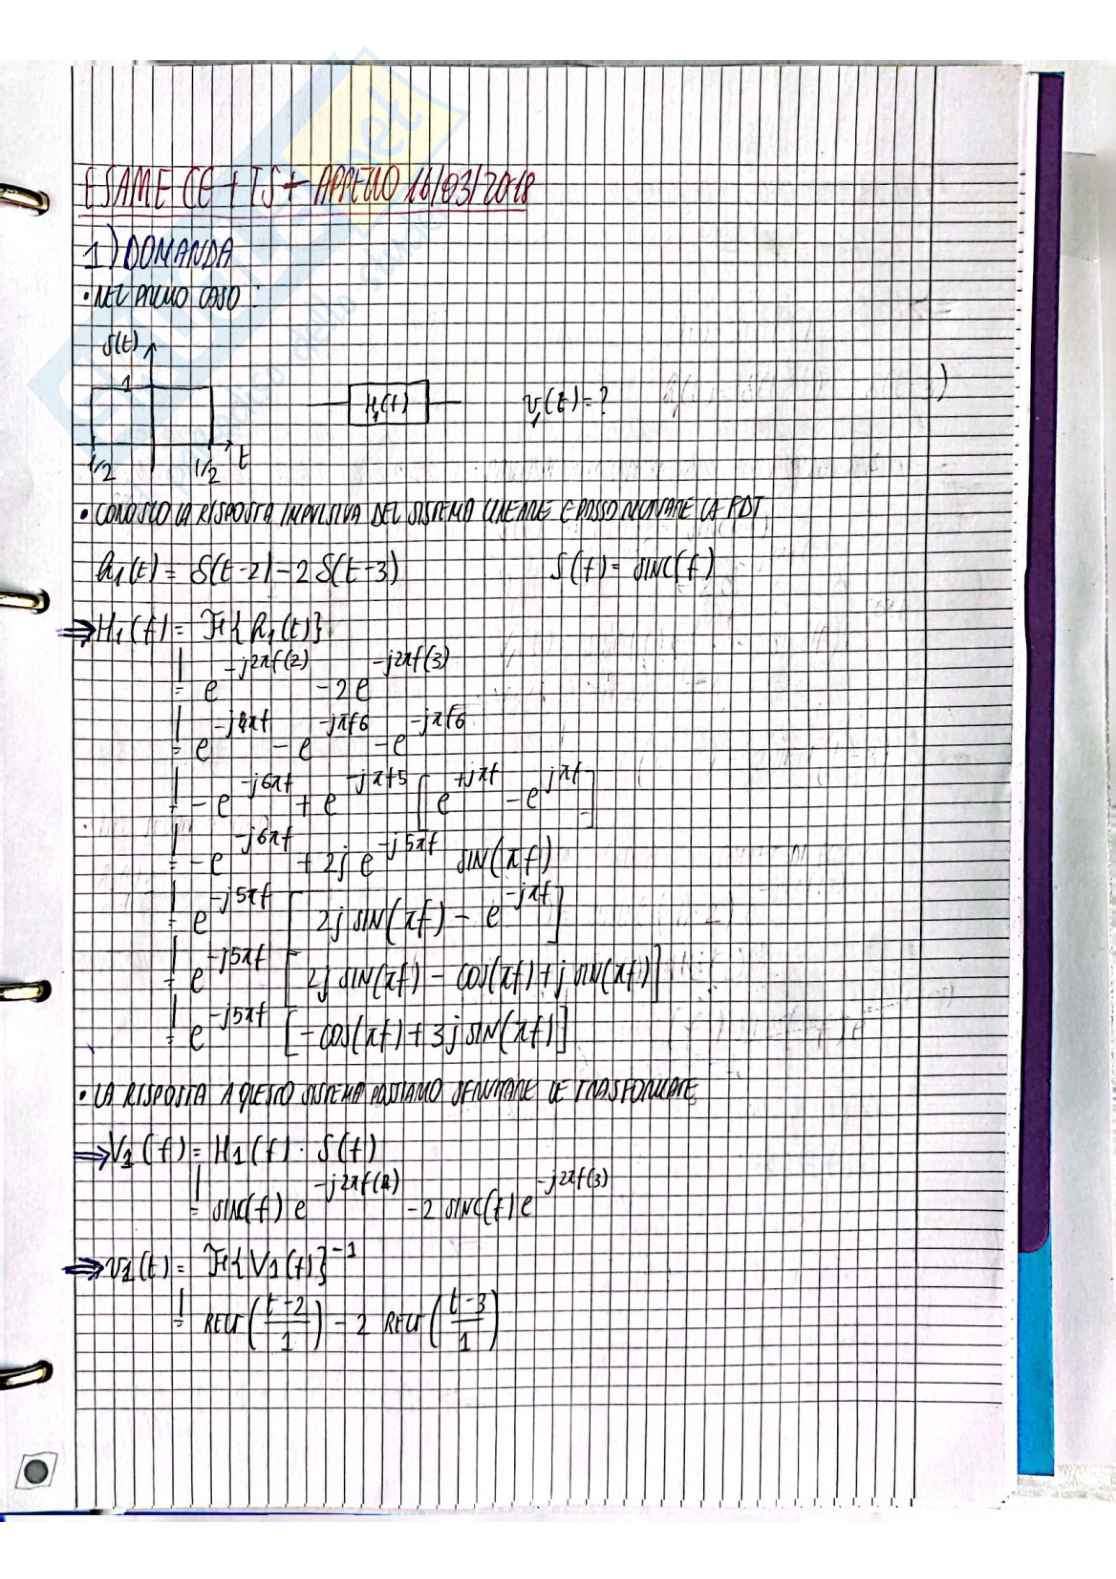 ESAME CE+TS+ APPELLO 16/03/2018
1) DOMANDA
• NEL PRIMO CASO :
s(t)
1
1/2 1/2 t
H₁(f)
v₁(t)=?
• CONOSCO LA RISPOSTA IMPULSIVA DEL SISTEMA LINEARE E POSSO RICAVARE LA FDT
h₁(t) = δ(t-2) - 2 δ(t-3) S(f) = SINC(f)
⇒ H₁(f) = F{h₁(t)}
= e^{-j2πf(2)} - 2e^{-j2πf(3)}
= e^{-j4πf} - e^{-jπf6} - e^{-jπf6}
= -e^{-j6πf} + e^{-jπf5} [e^{+jπf} - e^{jπf}]
= -e^{-j6πf} + 2j e^{-j5πf} SIN(πf)
= e^{-j5πf} [2j SIN(πf) - e^{-jπf}]
= e^{-j5πf} [2j SIN(πf) - COS(πf) + j SIN(πf)]
= e^{-j5πf} [-COS(πf) + 3j SIN(πf)]
• LA RISPOSTA A QUESTO SISTEMA POSSIAMO SFRUTTARE LE TRASFORMATE
⇒ V₁(f) = H₁(f) · S(f)
= SINC(f) e^{-j2πf(2)} - 2 SINC(f) e^{-j2πf(3)}
⇒ v₁(t) = F{V₁(f)}^{-1}
= RECT((t-2)/1) - 2 RECT((t-3)/1)